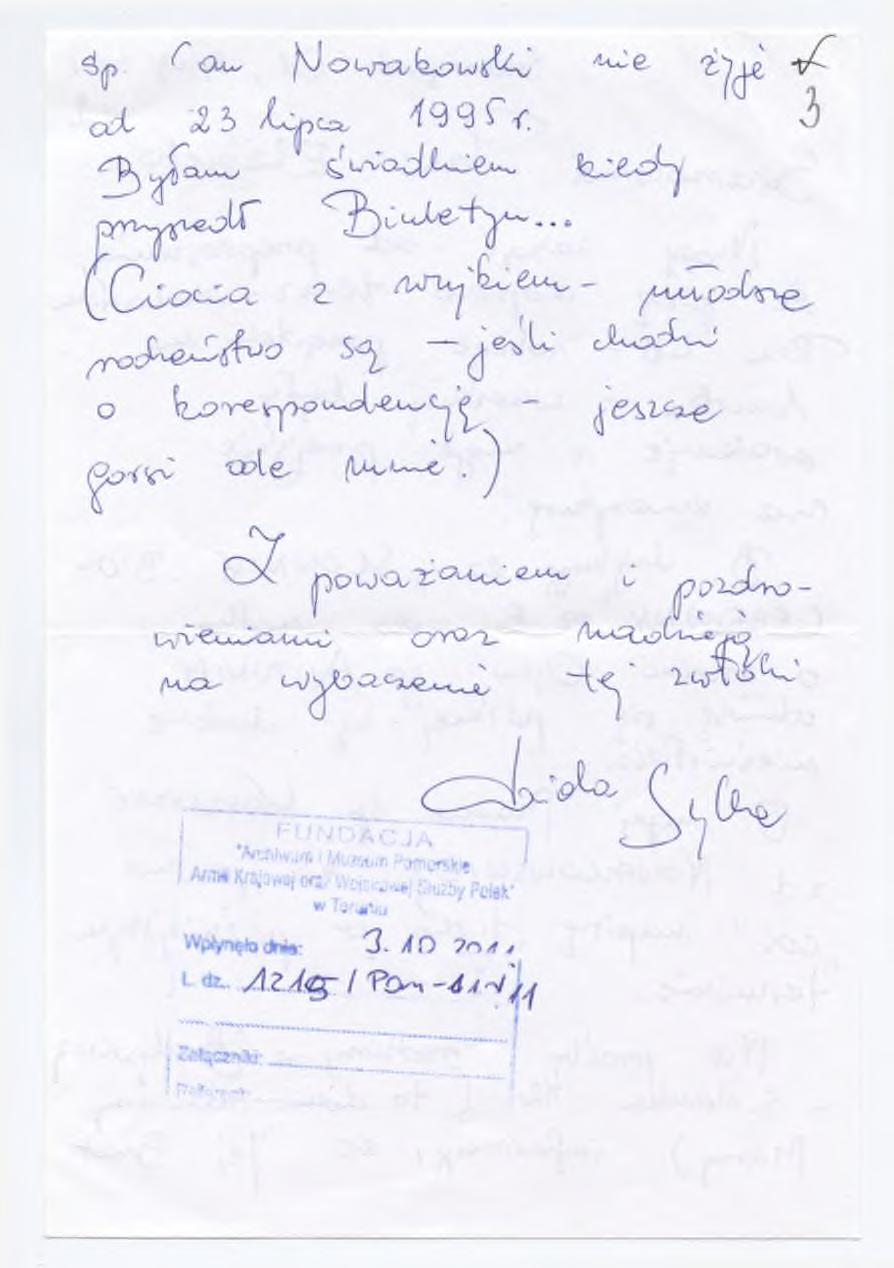 śp. Jan Nowakowski nie żyje
3
od 23 lipca 1995 r.
Byłam świadkiem kiedy
przyszedł Biuletyn...
(Ciocia z wujkiem - młodsze
rodzeństwo są - jeśli chodzi
o korespondencję - jeszcze
gorsi ode mnie.)
Z poważaniem i pozdro-
wieniami oraz nadzieją
na wybaczenie tej zwłoki
Sylka
FUNDACJA
"Archiwum i Muzeum Pomorskie
Armii Krajowej oraz Wojskowej Służby Polek"
w Toruniu
Wpłynęło dnia: 3.10 2011
L. dz.
Załączniki: